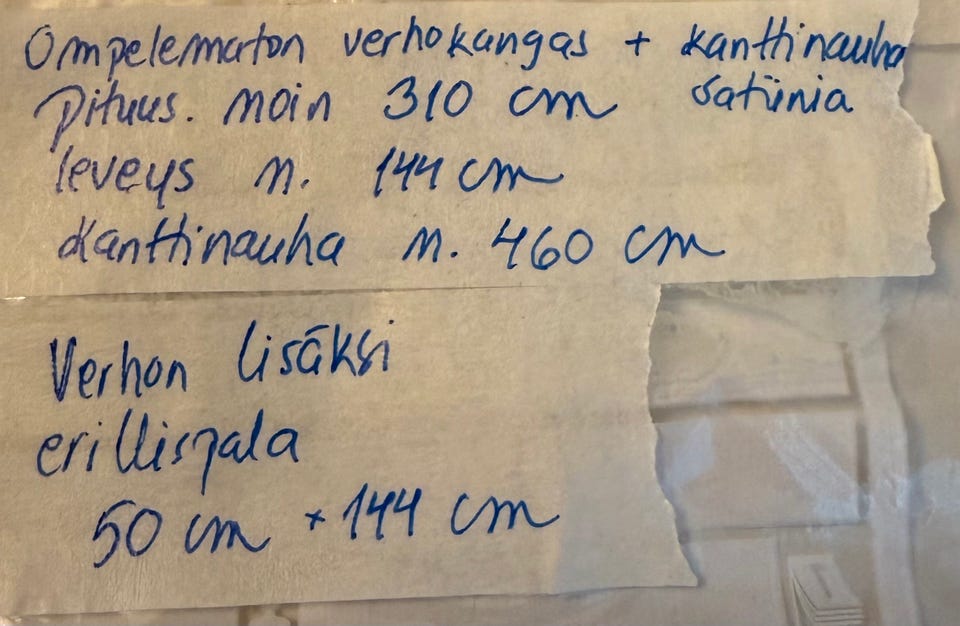 Ompelematon verhokangas + kanttinauha
Pituus. noin 310 cm satiinia
leveys n. 144 cm
kanttinauha n. 460 cm
Verhon lisäksi
erillispala
50 cm × 144 cm